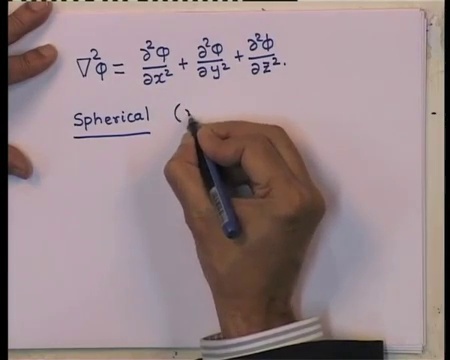 ∇²φ = ∂²φ/∂x² + ∂²φ/∂y² + ∂²φ/∂z².
Spherical (